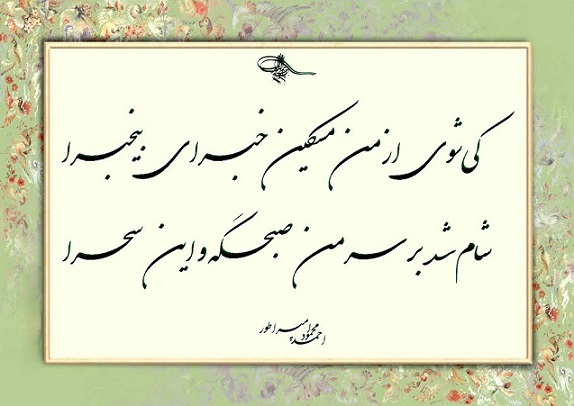 کی شوی از من مسکین خبر ای بیخبرا
شام شد بر سر من صبحگه و این سحرا
احمد محمود امپراطور